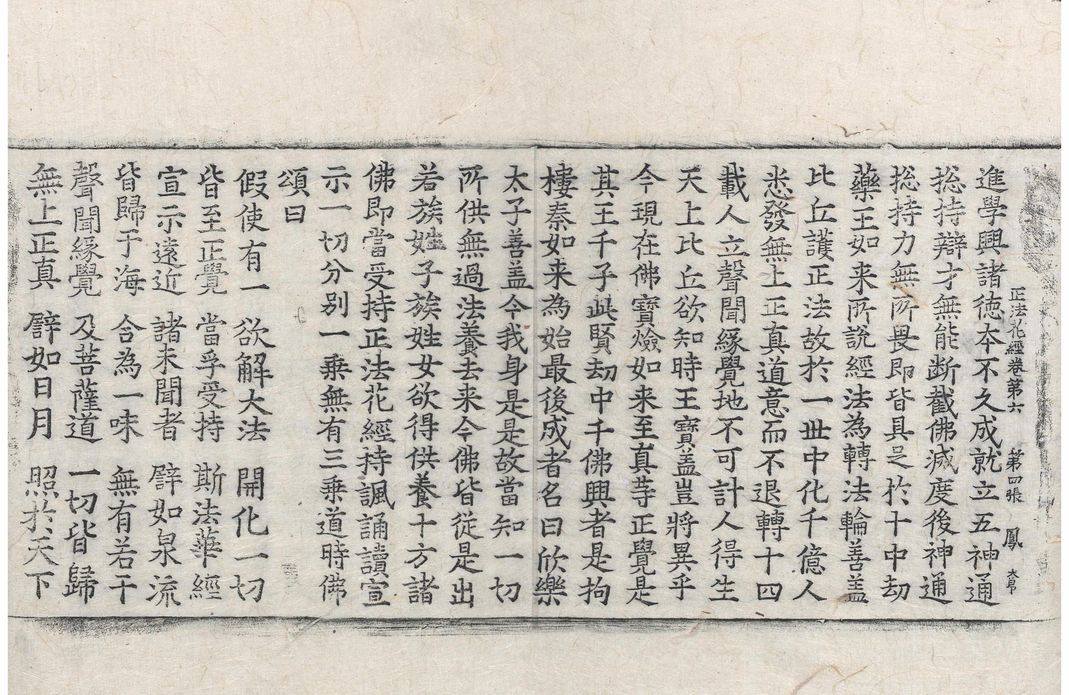 正法花經卷第六　第四張　鳳
進學興諸徳夲不久成就立五神通
揔持辯才無能断截佛滅度後神通
揔持力無所畏即皆具足於十中劫
藥王如来所說經法為轉法輪善盖
比丘護正法故於一世中化千億人
悉發無上正真道意而不退轉十四
載人立聲聞緣覺地不可計人得生
天上比丘欲知時王寶盖豈將異乎
今現在佛寶燄如来至真等正覺是
其王千子此賢劫中千佛興者是拘
樓秦如来為始最後成者名曰欣樂
太子善盖今我身是是故當知一切
所供無過法養去来今佛皆從是出
若族姓子族姓女欲得供養十方諸
佛即當受持正法花經持諷誦讀宣
示一切分別一乗無有三乗道時佛
頌曰
假使有一　欲解大法　開化一切
皆至正覺　當孚受持　斯法華經
宣示遠近　諸未聞者　譬如泉流
皆歸于海　合為一味　無有若干
聲聞緣覺　及菩薩道　一切皆歸
無上正真　譬如日月　照於天下